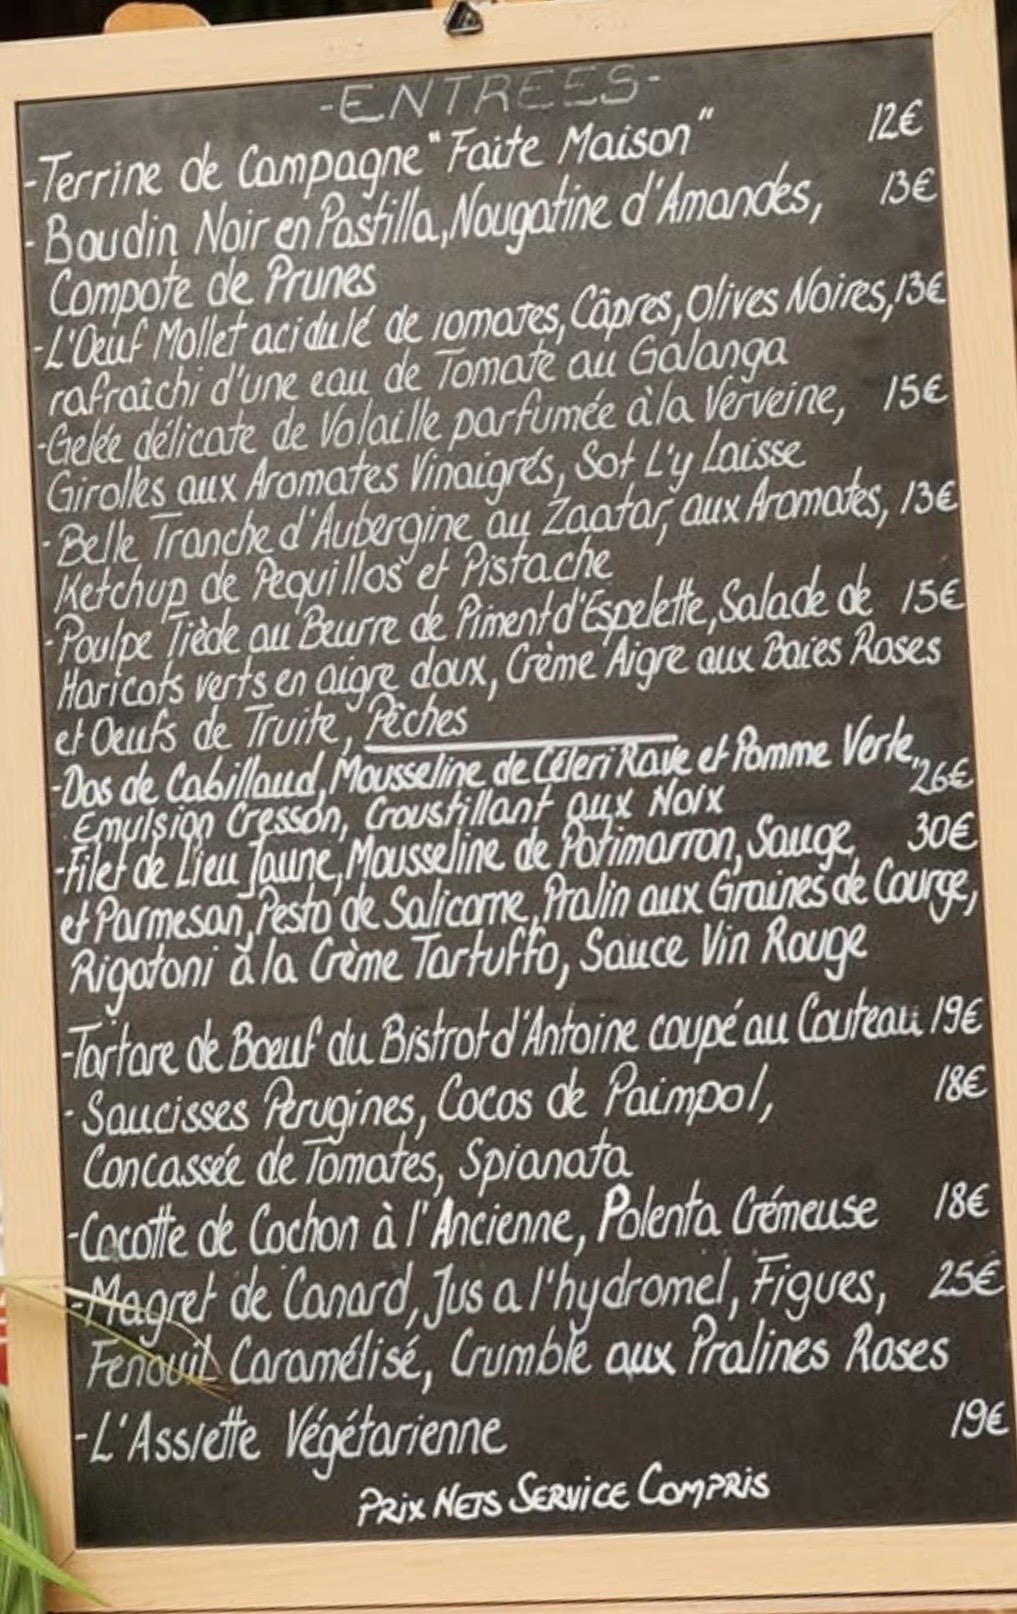 -ENTREES-
-Terrine de Campagne "Faite Maison" 12€
-Boudin Noir en Pastilla, Nougatine d'Amandes, 13€
Compote de Prunes
-L'Oeuf Mollet acidulé de Tomates, Câpres, Olives Noires, 13€
rafraîchi d'une eau de Tomate au Galanga
-Gelée délicate de Volaille parfumée à la Verveine, 15€
Girolles aux Aromates Vinaigrés, Sot L'y Laisse
-Belle Tranche d'Aubergine au Zaatar, aux Aromates, 13€
Ketchup de Pequillos et Pistache
-Poulpe Tiède au Beurre de Piment d'Espelette, Salade de 15€
Haricots verts en aigre doux, Crème Aigre aux Baies Roses
et Oeufs de Truite, Pêches
-Dos de Cabillaud, Mousseline de Céleri Rave et Pomme Verte, 26€
Emulsion Cresson, Croustillant aux Noix
-Filet de Lieu Jaune, Mousseline de Potimarron, Sauge, 30€
et Parmesan, Pesto de Salicorne, Pralin aux Graines de Courge,
Rigatoni à la Crème Tartuffo, Sauce Vin Rouge
-Tartare de Bœuf du Bistrot d'Antoine coupé au Couteau 19€
-Saucisses Perugines, Cocos de Paimpol, 18€
Concassée de Tomates, Spianata
-Cocotte de Cochon à l'Ancienne, Polenta Crémeuse 18€
-Magret de Canard, Jus a l'hydromel, Figues, 25€
Fenouil Caramélisé, Crumble aux Pralines Roses
-L'Assiette Végétarienne 19€
PRIX NETS SERVICE COMPRIS